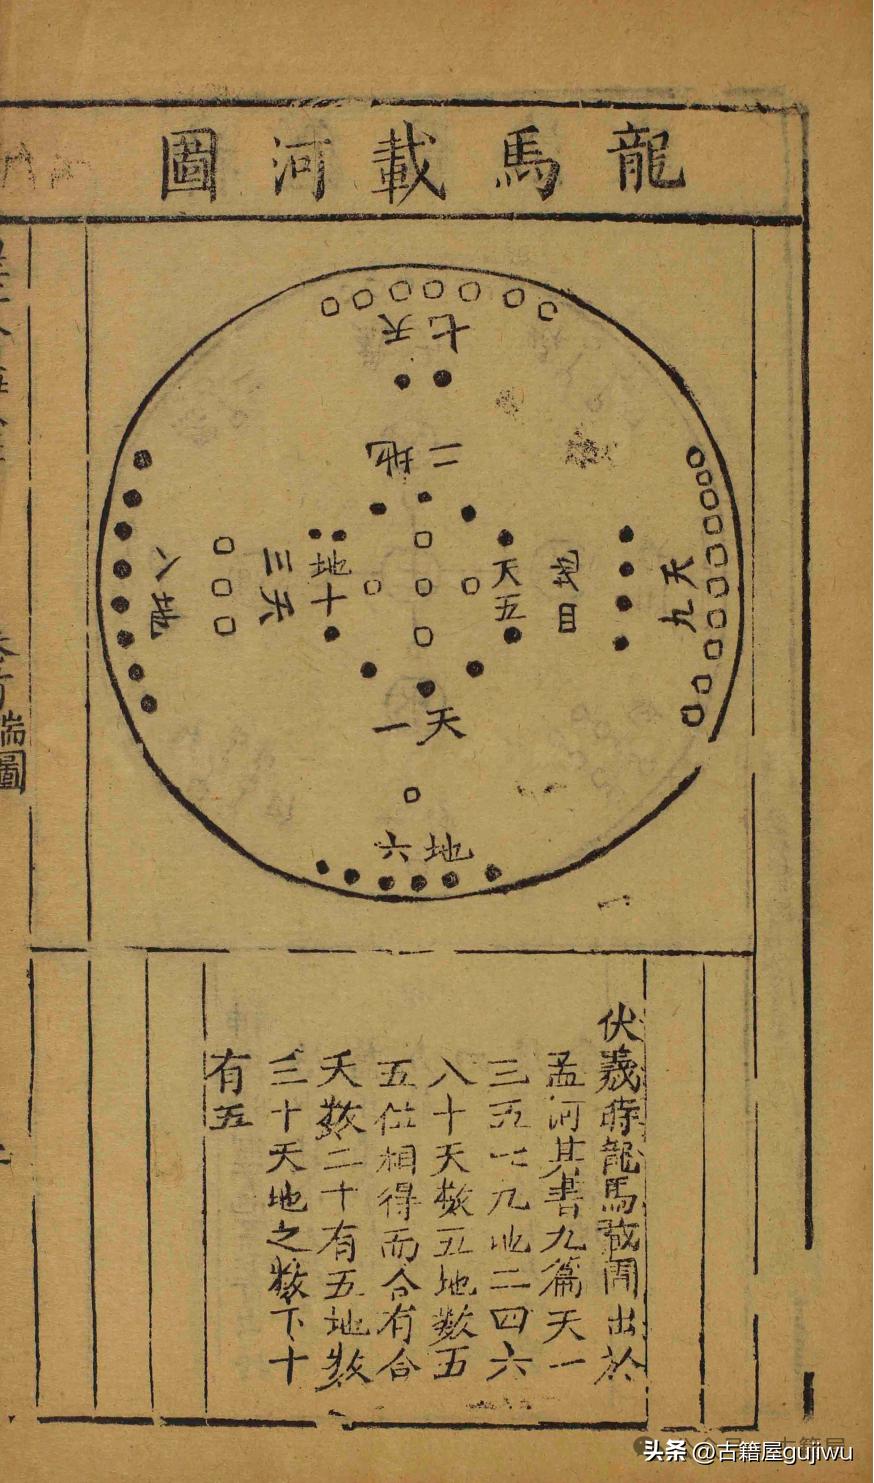 龍馬載河圖
七天
二地
八地
三天
地十
天五
四地
天九
天一
地六
伏羲時龍馬載圖出於
孟河其書九篇天一
三五七九地二四六
八十天数五地数五
五位相得而合有合
天数二十有五地数
三十天地之数下十
有五
瑞圖
头条 @古籍屋gujiwu